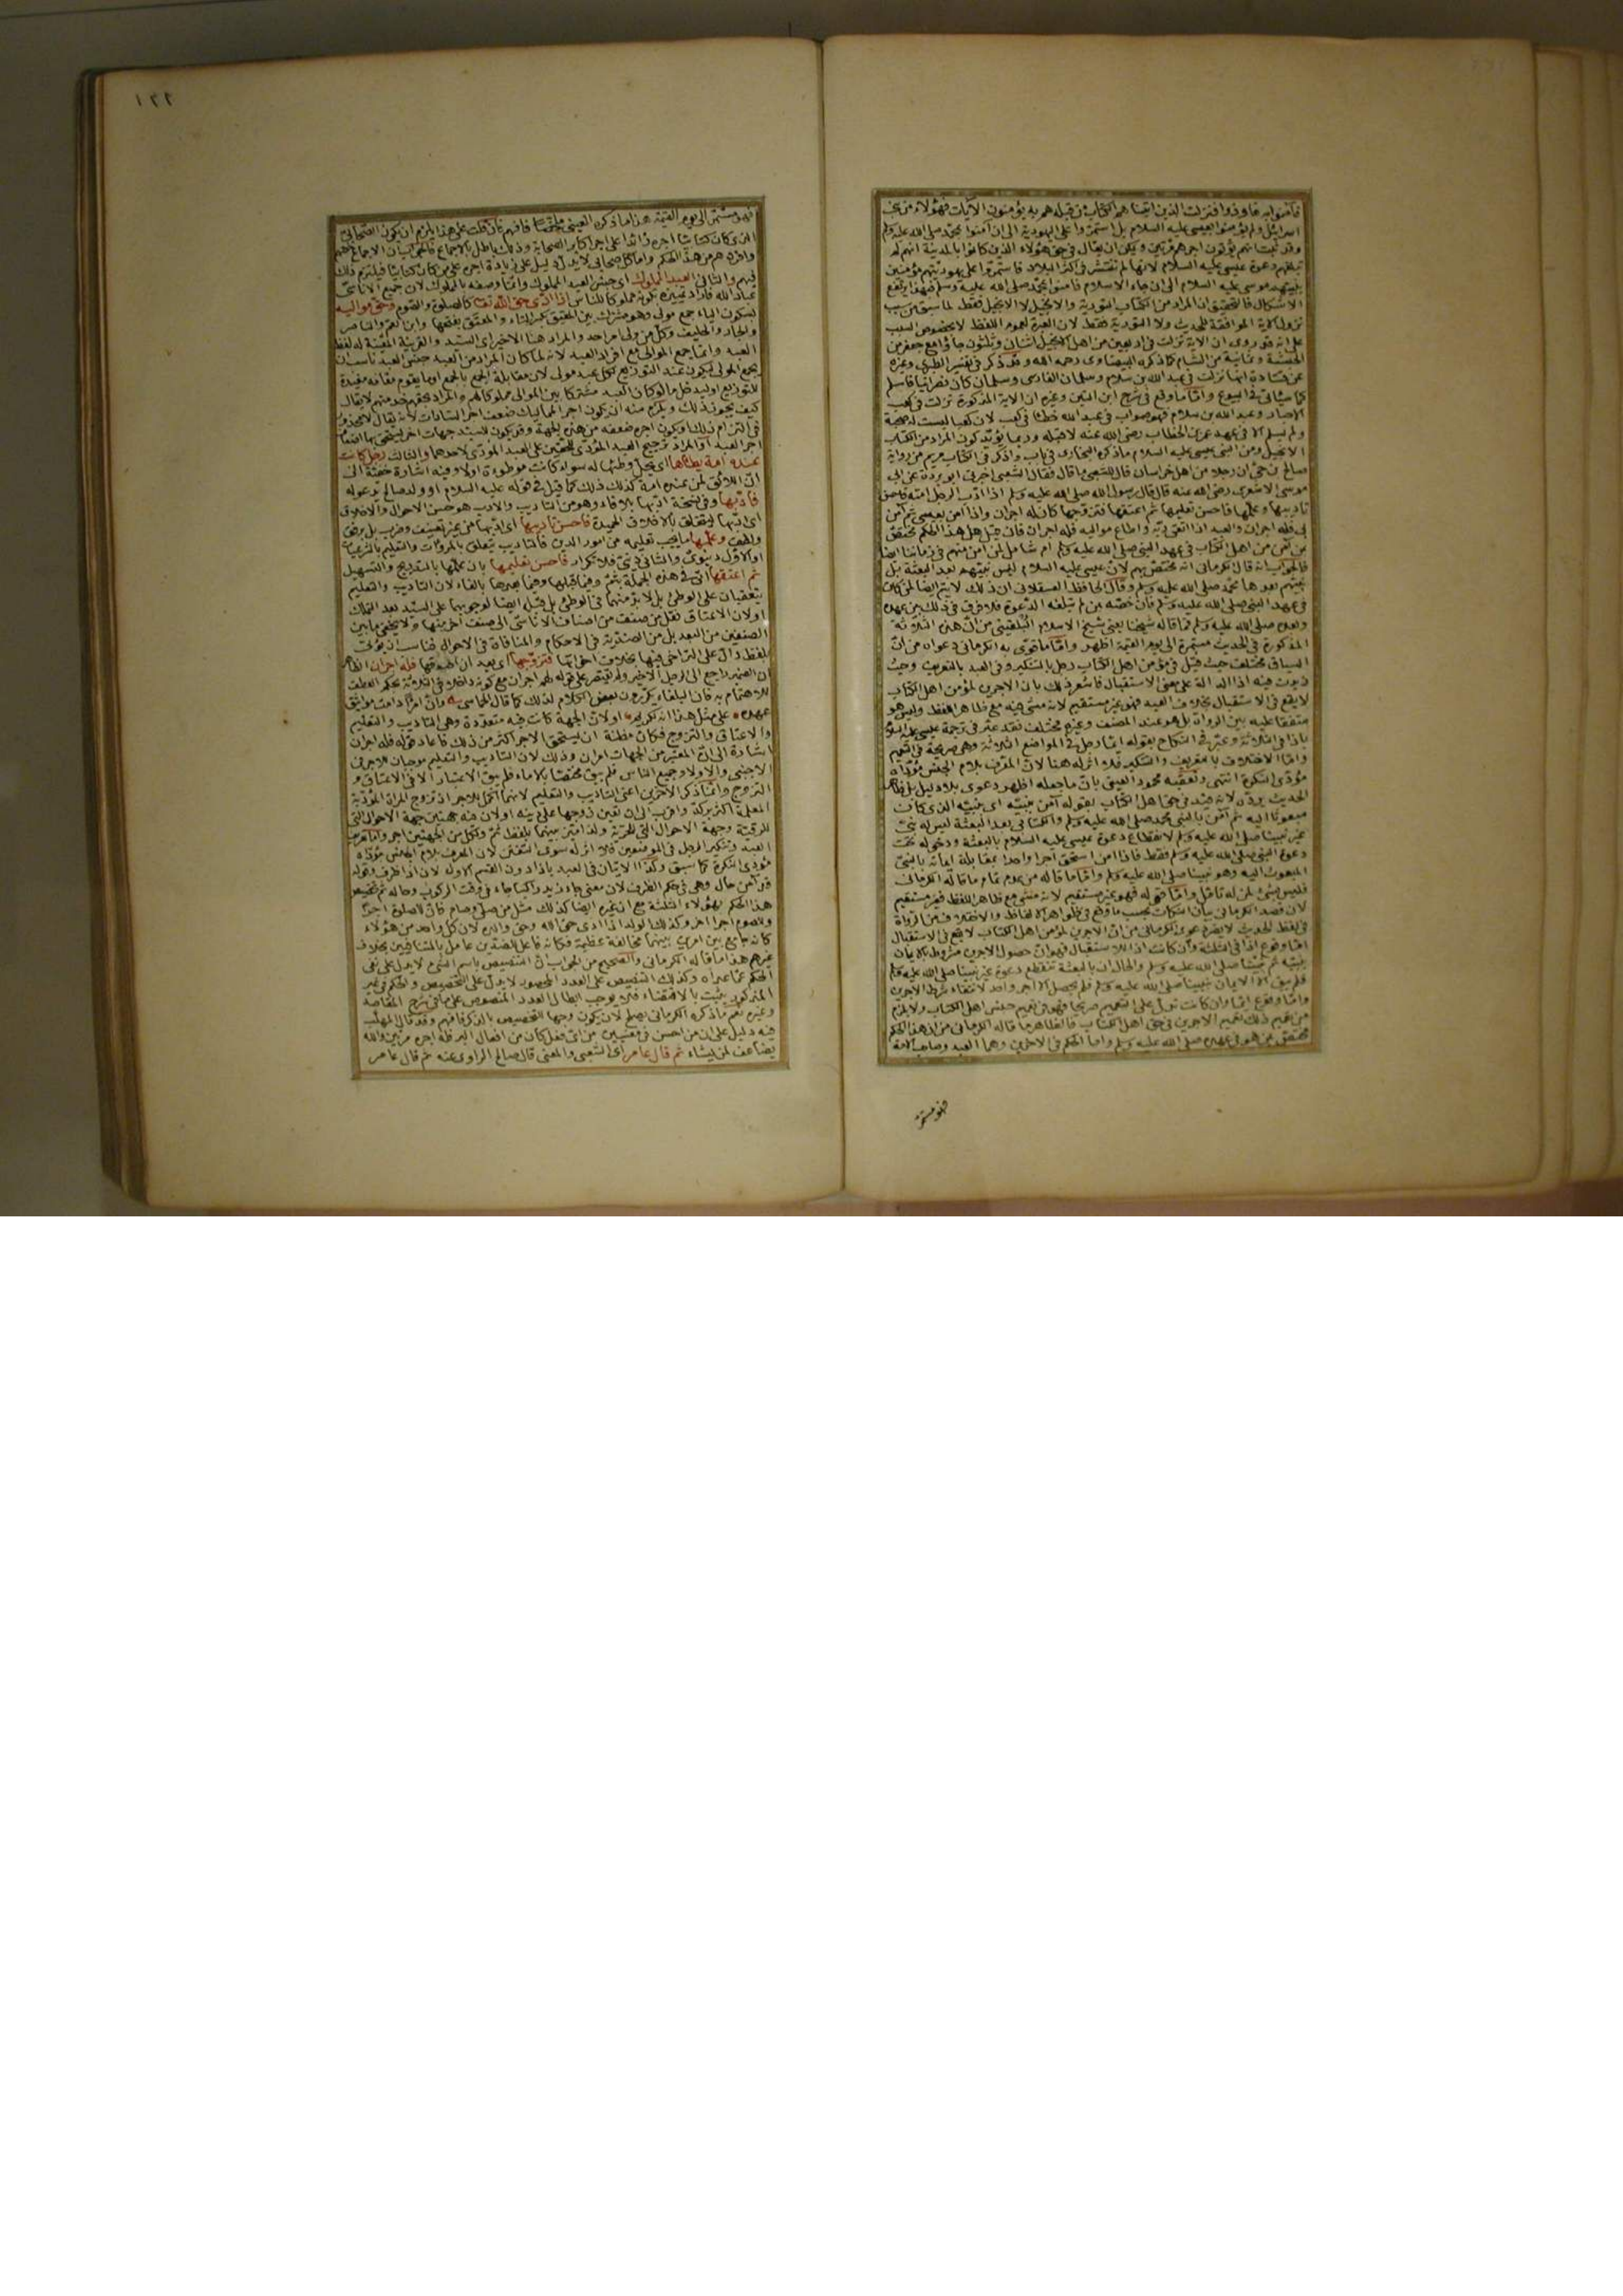 فآمنوا به فاوذوا فنزلت الذين اتيناهم الكتاب من قبله هم به يؤمنون الآيات فهؤلاء من بنى
اسرائيل ولم يؤمنوا بعيسى عليه السلام بل استمروا على اليهودية الى ان آمنوا بمحمد صلى الله عليه وسلم
وقد ثبت انهم يؤتون اجرهم مرتين ويمكن ان يقال فى حق هؤلاء الذين كانوا بالمدينة انهم لم
تبلغهم دعوة عيسى عليه السلام لانها لم تنتشر فى اكثر البلاد فاستمروا على يهوديتهم مؤمنين
بنبيهم موسى عليه السلام الى ان جاء الاسلام فآمنوا بمحمد صلى الله عليه وسلم فبهذا يرتفع
الاشكال فالتحقيق ان المراد من الكتاب التورية والانجيل لا الانجيل فقط لما سبق من سبب
نزول الآية الموافقة للحديث ولا التورية فقط لان العبرة لعموم اللفظ لا بخصوص السبب
على انه قد روى ان الآية نزلت فى اربعين من اهل الانجيل اثنان وثلثون جاؤا مع جعفر من
الحبشة وثمانية من الشام كما ذكره البيضاوى رحمه الله وقد ذكر فى تفسير الطبرى وغيره
عن قتادة انها نزلت فى عبد الله بن سلام وسلمان الفارسى وسلمان كان نصرانيا فاسلم
كما سيأتى فى البيوع واما ما وقع فى شرح ابن التين وغيره ان الآية المذكورة نزلت فى كعب
الاحبار وعبد الله بن سلام فهو صواب فى عبد الله خطأ فى كعب لان كعبا ليست له صحبة
ولم يسلم الا فى عهد عمر بن الخطاب رضى الله عنه لا قبله وربما يؤيد كون المراد من الكتاب
الانجيل ومن النبى عيسى عليه السلام ما ذكره البخارى فى باب واذكر فى الكتاب مريم من رواية
صالح بن حى ان رجلا من اهل خراسان قال للشعبى ما قال فقال الشعبى اخبرنى ابو بردة عن ابى
موسى الاشعرى رضى الله عنه قال قال رسول الله صلى الله عليه وسلم اذا ادب الرجل امته فاحسن
تأديبها وعلمها فاحسن تعليمها ثم اعتقها فتزوجها كان له اجران واذا آمن بعيسى ثم آمن
بى فله اجران والعبد اذا اتقى ربه واطاع مواليه فله اجران فان قيل هل هذا الحكم مختص
بمن آمن من اهل الكتاب فى عهد النبى صلى الله عليه وسلم ام شامل لمن آمن منهم فى زماننا ايضا
فالجواب انه قال الكرمانى انه مختص بهم لان عيسى عليه السلام ليس نبيهم بعد البعثة بل
نبيهم بعدها محمد صلى الله عليه وسلم وقال الحافظ العسقلانى ان ذلك لا يتم ايضا لمن كان
فى عهد النبى صلى الله عليه وسلم فان خصه بمن لم تبلغه الدعوة فلا فرق فى ذلك بين عهده
وبعده صلى الله عليه وسلم فما قاله شيخنا يعنى شيخ الاسلام البلقينى من ان هذه الثلاثة
المذكورة فى الحديث مستمرة الى يوم القيمة اظهر واما ما قوى به الكرمانى دعواه من ان
السياق مختلف حيث قيل فى مؤمن اهل الكتاب رجل بالتنكير وفى العبد بالتعريف وحيث
زيدت فيه اذا الدالة على معنى الاستقبال فاشعر ذلك بان الاجرين لمؤمن اهل الكتاب
لا يقع فى الاستقبال بخلاف العبد فهو غير مستقيم لانه مشى فيه مع ظاهر اللفظ وليس هو
متفقا عليه بين الرواة بل هو عند المصنف وغيره مختلف فقد عبر فى ترجمة عيسى عليه السلام
باذا فى الثلاثة وعبر فى النكاح بقوله ايما رجل فى المواضع الثلاثة وهى صريحة فى التعميم
واما الاختلاف بالتعريف والتنكير فلا اثر له هنا لان المعرف بلام الجنس مؤداه
مؤدى النكرة انتهى وتعقبه محمود العينى بان ما جعله اظهر دعوى بلا دليل بل ظاهر
الحديث يرده لانه قيد فى حق اهل الكتاب بقوله آمن بنبيه اى بنبيه الذى كان
مبعوثا اليه ثم آمن بالنبى محمد صلى الله عليه وسلم والكتابى بعد البعثة ليس له نبى
غير نبينا صلى الله عليه وسلم لانقطاع دعوة عيسى عليه السلام بالبعثة ودخوله تحت
دعوة النبى صلى الله عليه وسلم فقط فاذا آمن استحق اجرا واحدا بمقابلة ايمانه بالنبى
المبعوث اليه وهو نبينا صلى الله عليه وسلم واما ما قاله من عدم تمام ما قاله الكرمانى
فليس بشئ لمن له تأمل واما قوله فهو غير مستقيم لانه مشى مع ظاهر اللفظ فغير مستقيم
لان قصد الكرمانى بيان النكات بحسب ما وقع فى ظواهر الالفاظ والاختلاف من الرواة
فى لفظ الحديث لا يضر دعوى الكرمانى من ان الاجرين لمؤمن اهل الكتاب لا يقع فى الاستقبال
اما وقوع اذا فى الثلثة وان كانت اذا للاستقبال فهو ان حصول الاجرين مشروط بالايمان
بنبيه ثم بنبينا صلى الله عليه وسلم والحال ان بالبعثة تنقطع دعوة غير نبينا صلى الله عليه وسلم
فلم يبق الا الايمان بنبينا صلى الله عليه وسلم فلم يحصل الا اجر واحد لانتفاء شرط الاجرين
واما وقوع ايما وان كانت تدل على التعميم صريحا فهو فى تعميم جنس اهل الكتاب ولا يلزم
من تعميم ذلك تعميم الاجرين فى حق اهل الكتاب فالظاهر ما قاله الكرمانى من ان هذا الحكم
مختص بمن هو فى عهده صلى الله عليه وسلم واما الحكم فى الاخرين وهما العبد وصاحب الامة
فهو مستمر
٢٢١
فهو مستمر الى يوم القيمة هذا ما ذكره العينى ملخصا فافهم فان قلت على هذا يلزم ان يكون الصحابى
الذى كان كتابيا اجره زائدا على اجر اكابر الصحابة وذلك باطل بالاجماع
واخرجهم من هذا الحكم واما كل صحابى لا يدل دليل على زيادة اجره على من كان كتابيا فيلتزم ذلك
فيهم والثانى العبد المملوك اى جنس العبد المملوك وانما وصفه بالمملوك لان جميع الاناسى
عباد الله فاراد تمييزه بكونه مملوكا للناس اذا ادى حق الله تعالى كالصلوة والصوم وحق مواليه
بسكون الياء جمع مولى وهو مشترك بين المعتق بكسر التاء والمعتق بفتحها وابن العم والناصر
والجار والحليف وكل من ولى امر احد والمراد هنا الاخير اى السيد والقرينة المعينة له لفظ
العبد وانما جمع الموالى مع افراد العبد لانه لما كان المراد من العبد جنس العبد ناسب ان
يجمع المولى ليكون عند التوزيع لكل عبد مولى لان مقابلة الجمع بالجمع او ما يقوم مقامه مفيدة
للتوزيع او ليدخل ما لو كان العبد مشتركا بين الموالى مملوكا لهم والمراد بحقهم خدمتهم لا يقال
كيف يجوز ذلك ويلزم منه ان يكون اجر المماليك ضعف اجر السادات لانه يقال لا محذور
فى التزام ذلك او يكون اجره ضعفه من هذه الجهة وقد يكون للسيد جهات اخر يستحق بها اضعاف
اجر العبد او المراد ترجيح العبد المؤدى للحقين على العبد المؤدى لاحدهما والثالث رجل كانت
عنده امة يطأها اى يحل وطئها له سواء كانت موطوءة اولا وفيه اشارة خفية الى
ان اللائق لمن عنده امة كذلك ذلك كما قيل فى قوله عليه السلام او ولد صالح يدعو له
فأدبها وفى نسخة ادبها بلا فاء وهو من التأديب والادب هو حسن الاحوال والاخلاق
اى ادبها ليتخلق بالاخلاق الحميدة فاحسن تأديبها اى ادبها من غير تعنيف وضرب بل برفق
ولطف وعلمها ما يجب تعليمه من امور الدين فالتأديب يتعلق بالمروءات والتعليم بالشرعيات
او الاول دنيوى والثانى دينى فلا تكرار فاحسن تعليمها بان علمها بالتدريج والتسهيل
ثم اعتقها اتى فى هذه الجملة بثم وفيما قبلها وفيما بعدها بالفاء لان التأديب والتعليم
يتعقبان على الوطئ بل لا بد منهما فى الوطئ بل قبله ايضا لوجوبهما على السيد بعد التملك
او لان الاعتاق نقل من صنف من اصناف الاناسى الى صنف آخر منها ولا يخفى ما بين
الصنفين من البعد بل من الضدية فى الاحكام والمنافاة فى الاحوال فناسب ان يؤتى
بلفظ دال على التراخى فيها بخلاف اخواتها فتزوجها اى بعد ان اصدقها فله اجران الظاهر
ان الضمير راجع الى الرجل الاخير ولم يقتصر على قوله لهم اجران مع كونه داخلا فى الثلاثة بحكم العطف
للاهتمام به فان البلغاء يكررون بعض الكلام لذلك كما قال الحماسى وان امرأ دامت مواثيق
عهده على مثل هذا انه لكريم او لان الجهة كانت فيه متعددة وهى التأديب والتعليم
والاعتاق والتزوج فكان مظنة ان يستحق الاجر اكثر من ذلك فاعاد قوله فله اجران
اشارة الى ان المعتبر من الجهات امران وذلك لان التأديب والتعليم موجبان للاجر فى
الاجنبى والاولاد وجميع الناس فلم يبق مختصا بالاماء فلم يبق الاعتبار الا فى الاعتاق و
التزوج وانما ذكر الآخرين اعنى التأديب والتعليم لانهما اكمل للاجر اذ تزوج المرأة المؤدبة
المعلمة اكثر بركة واقرب الى ان تعين زوجها على دينه او لان فيه جهتين جهة الاحوال التى
للرقية وجهة الاحوال التى للحرية ولذا ميز بينهما بلفظ ثم ولكل من الجهتين اجر واما تعريف
العبد وتنكير الرجل فى الموضعين فلا اثر له سوى التفنن لان المعرف بلام الجنس مؤداه
مؤدى النكرة كما سبق وكذا الاتيان فى العبد باذا دون القسم الاول لان اذا ظرف وقوله
قد آمن حال وهى فى حكم الظرف لان معنى جاء زيد راكبا جاء فى وقت الركوب وحاله ثم تخصيص
هذا الحكم بهؤلاء الثلثة مع ان غيره ايضا كذلك مثل من صلى وصام فان للصلوة اجرا
وللصوم اجرا آخر وكذلك الولد اذا ادى حق الله وحق والده لان كل واحد من هؤلاء
كانه جامع بين امرين بينهما مخالفة عظيمة فكانه فاعل للضدين عامل بالمتنافيين بخلاف
غيرهم هذا ما قاله الكرمانى والصحيح من الجواب ان التنصيص باسم الشئ لا يدل على نفى
الحكم عما عداه وكذلك التنصيص على العدد المحصور لا يدل على التخصيص والحكم فى غير
المذكور يثبت بالاقتضاء فلا يوجب ابطال العدد المنصوص على ما فى شرح المقاصد
وغيره نعم ما ذكره الكرمانى يصلح لان يكون وجها لتخصيص بالذكر فافهم وقد قال المهلب
فيه دليل على ان من احسن فى معنيين من اى فعل كان من افعال البر فله اجره مرتين والله
يضاعف لمن يشاء ثم قال عامر اى الشعبى والمعنى قال صالح الراوى عنه ثم قال عامر